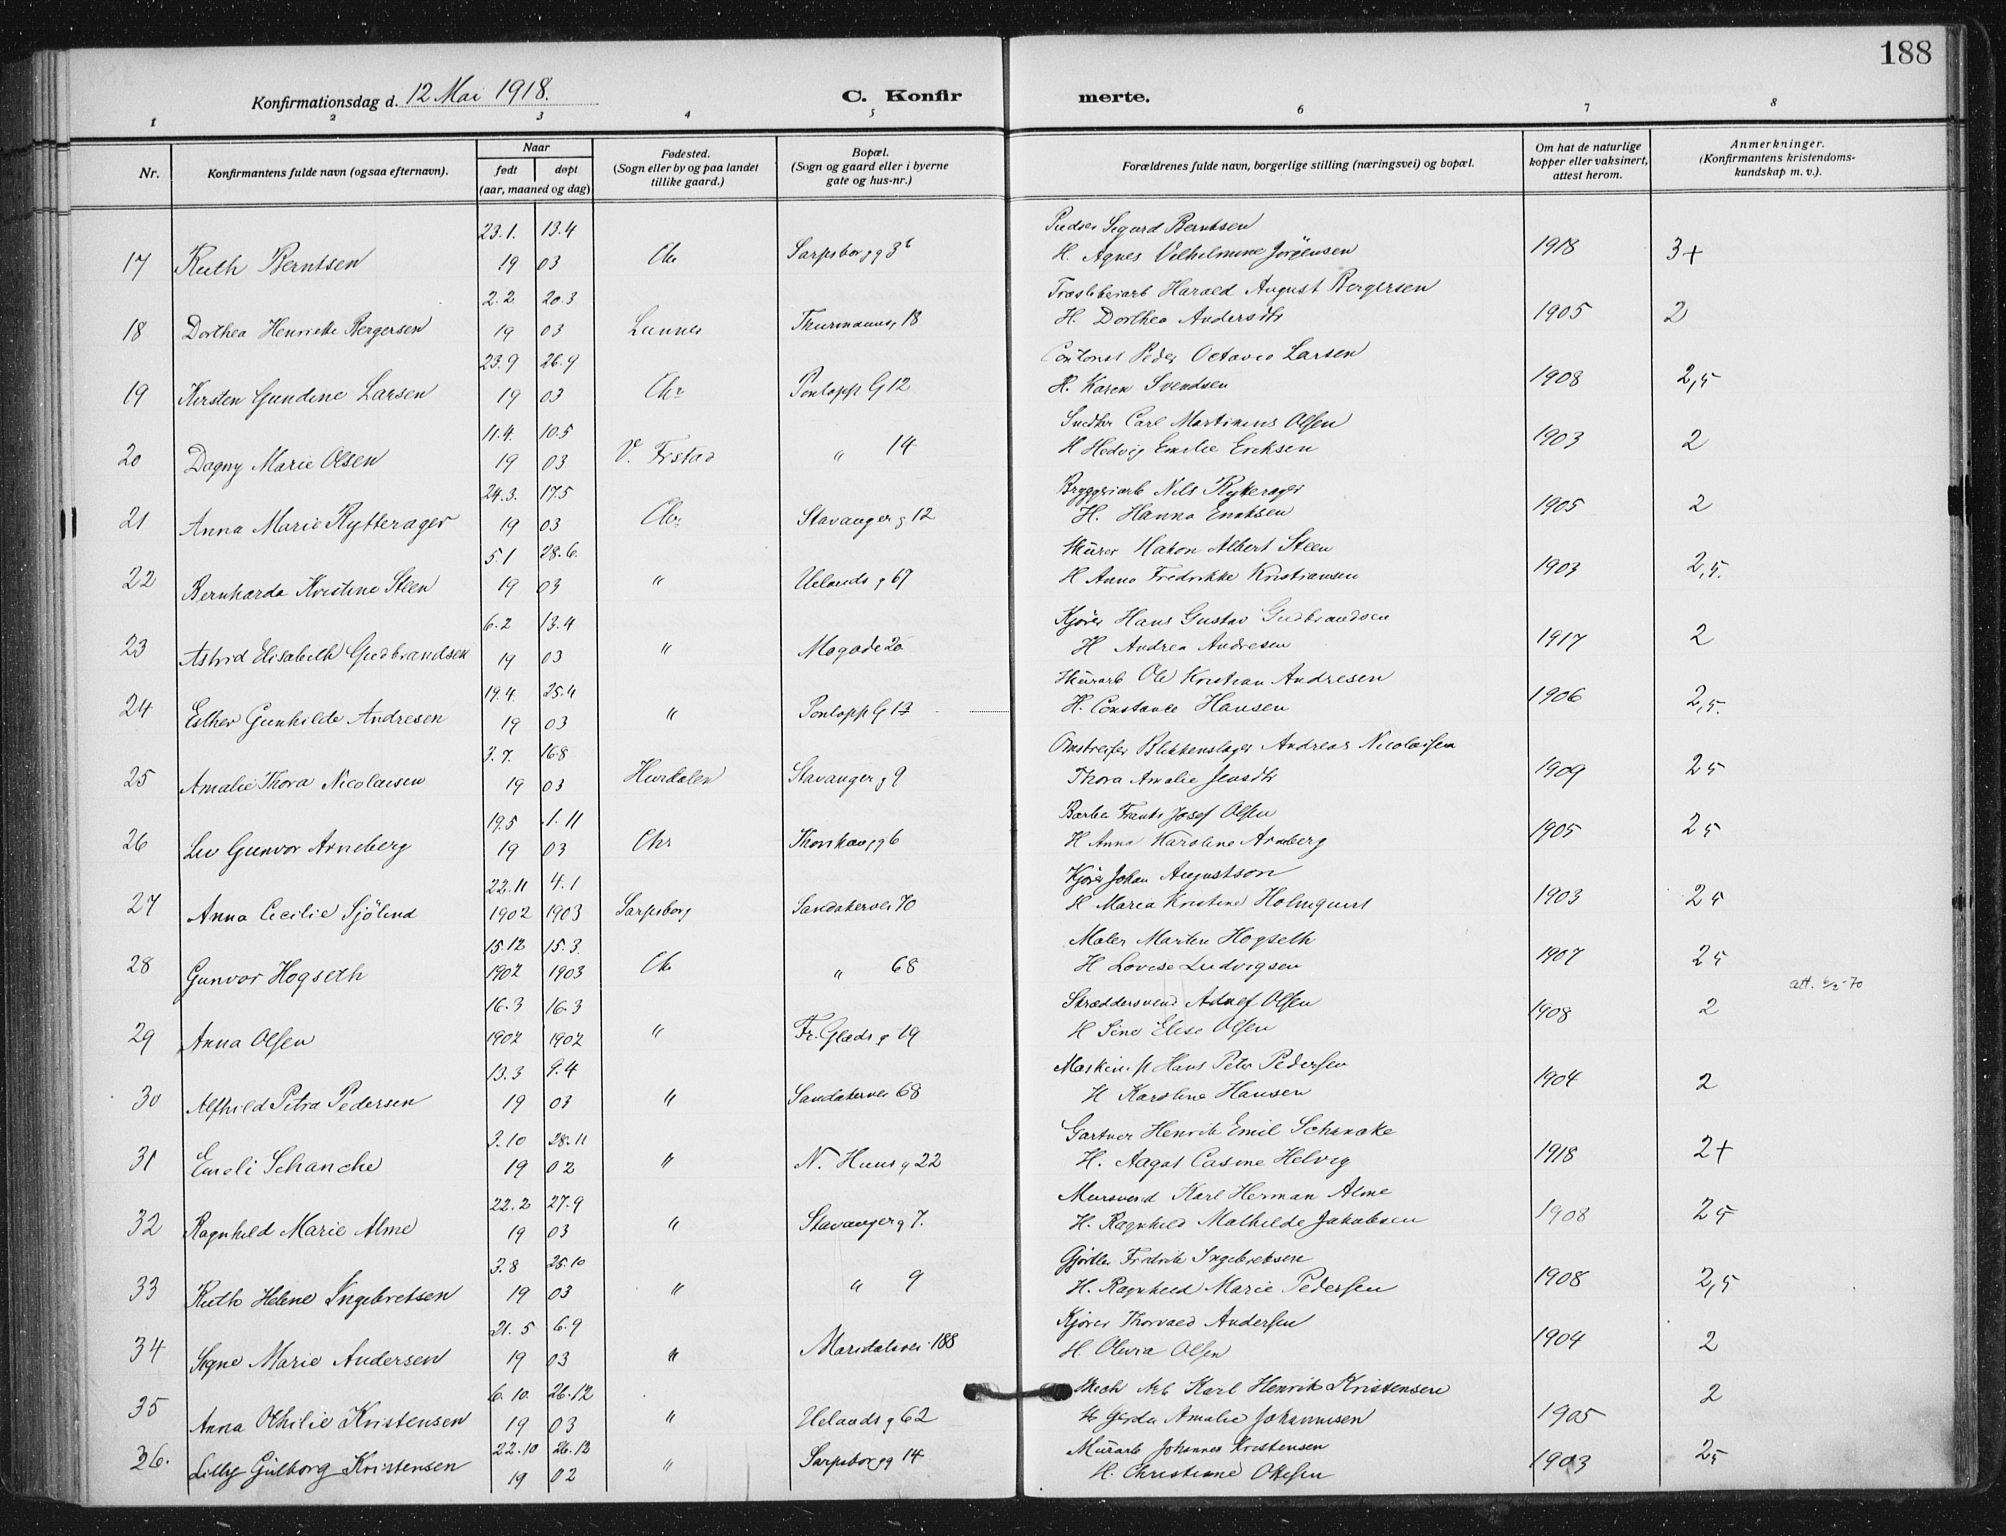 188
Konfirmationsdag d. 12 Mai 1918.
C. Konfirmerte.
1 2 3 4 5 6 7 8
Nr.
Konfirmantens fulde navn (ogsaa efternavn).
Naar
født døpt
(aar, maaned og dag)
Fødested.
(Sogn eller by og paa landet
tillike gaard.)
Bopæl.
(Sogn og gaard eller i byerne
gate og hus-nr.)
Forældrenes fulde navn, borgerlige stilling (næringsvei) og bopæl.
Om hat de naturlige
kopper eller vaksinert,
attest herom.
Anmerkninger.
(Konfirmantens kristendoms-
kundskap m. v.).
23.1. 13.4 Sigurd Berntsen
17 Ruth Berntsen 19 03 Chr Sarpsborgg 36 H. Agnes Vilhelmine Jörgensen 1918 3+
2.2. 20.3 Harald August Bergersen
18 Dorthea Henriette Bergersen 19 03 Lunner Thurmannsg 18 H. Dorthea Andersdtr 1905 2
23.9 26.9 Peder Octavio Larsen
19 Kirsten Gundine Larsen 19 03 Chr Pontopp G 12 H. Karen Svendsen 1908 2,5
11.4. 10.5 Snedker Carl Martinius Olsen
20 Dagny Marie Olsen 19 03 V. Fr.stad " 14 H Hedvig Emilie Eriksen 1903 2
24.3. 17.5 Bryggeriarb Nils Rytterager
21 Anna Marie Rytterager 19 03 Chr Stavangerg 12 H. Hanna Enoksen 1905 2
5.1 28.6. Murer Hakon Albert Steen
22 Bernharda Kristine Steen 19 03 " Uelandsg 67 H Anna Fredrikke Kristiansen 1903 2,5.
6.2 13.4 Kjörer Hans Gustav Gudbrandsen
23 Astrid Elisabeth Gudbrandsen 19 03 " Mogade 20 H Andrea Andresen 1917 2
19.4. 25.4 Murarb Ole Kristian Andresen
24 Esther Gunhilde Andresen 19 03 " Pontopp G 13 H. Constance Hansen 1906 2,5.
3.7. 16.8 Omstreifer Blikkenslager Andreas Nicolaisen
25 Amalie Thora Nicolaisen 19 03 Hurdalen Stavangerg 9 Thora Amalie Jensdtr 1909 25
19.5 1.11 Barber Frants Josef Olsen
26 Liv Gunvor Arneberg 19 03 Chr Thorshaugg 6 H Anna Karoline Arneberg 1905 25
22.11 4.1 Kjörer Johan Augustson
27 Anna Cecilie Sjölund 1902 1903 Sarpsborg Sandakervei 70 H Maria Kristine Holmquist 1903 25
15.12 15.3. Maler Martin Hogseth
28 Gunvor Hogseth 1902 1903 Chr " 68 H Lovise Ludvigsen 1907 25
16.3 16.3 Skræddersvend Adolf Olsen att. 6/2-70
29 Anna Olsen 1902 1902 " Fr. Gladsg 19 H Sine Elise Olsen 1908 2
13.3 9.4 Hans Peter Pedersen
30 Alfhild Petra Pedersen 19 03 " Sandakervei 68 H Karoline Hansen 1904 2
3.10 28.11 Gartner Henrik Emil Schancke
31 Emeli Schanche 19 02 " N. Huusg 22 H. Aagot Casine Helvig 1918 2+
22.2 27.9 Mursvend Karl Herman Alme
32 Ragnhild Marie Alme 19 03 " Stavangerg 7. H. Ragnhild Mathilde Jakobsen 1908 25
3.8 25.10 Gjörtler Fredrik Ingebretsen
33 Ruth Helene Ingebretsen 19 03 " " 9 H. Ragnhild Marie Pedersen 1908 2,5
21.5 6.9 Kjörer Thorvald Andersen
34 Signe Marie Andersen 19 03 " Maridalsvei 188 H. Olivia Olsen 1904 2
6.10. 26.12 Mech Arb Karl Henrik Kristensen 2
35 Anna Othilie Kristensen 19 03 " Uelandsg 62 H Gerda Amalie Johannesen 1905
22.10 26.12 Murarb Johannes Kristensen
36. Lilly Gulborg Kristensen 19 02 " Sarpsborgg 14 H. Christiane Ottesen 1903 25